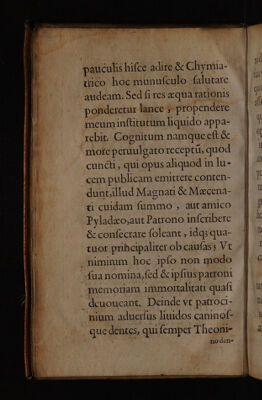 pauculis hisce adire & Chymia-
trico hoc munusculo salutare
audeam. Sed si res æqua rationis
ponderetur lance, propendere
meum institutum liquido appa-
rebit. Cognitum namque est &
more peruulgato receptũ, quod
cuncti, qui opus aliquod in lu-
cem publicam emittere conten-
dunt, illud Magnati & Mæcena-
ti cuidam summo, aut amico
Pyladæo, aut Patrono inscribere
& consecrare soleant, idq; qua-
tuor principaliter ob causas; Vt
nimirum hoc ipso non modo
sua nomina, sed & ipsius patroni
memoriam immortalitati quasi
deuoueant. Deinde vt patroci-
nium aduersus liuidos caninos-
que dentes, qui semper Theoni-
no den-